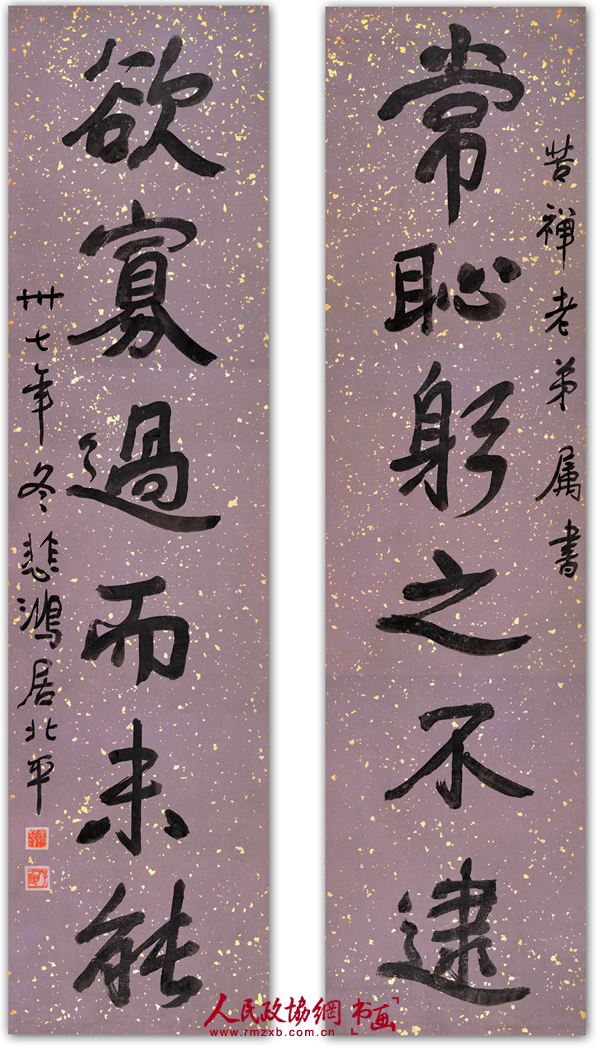 苦禅老弟属书
常恥躬之不逮
欲寡過而未能
卅七年冬悲鴻居北平
人民政協網书画
www.rmzxb.com.cn